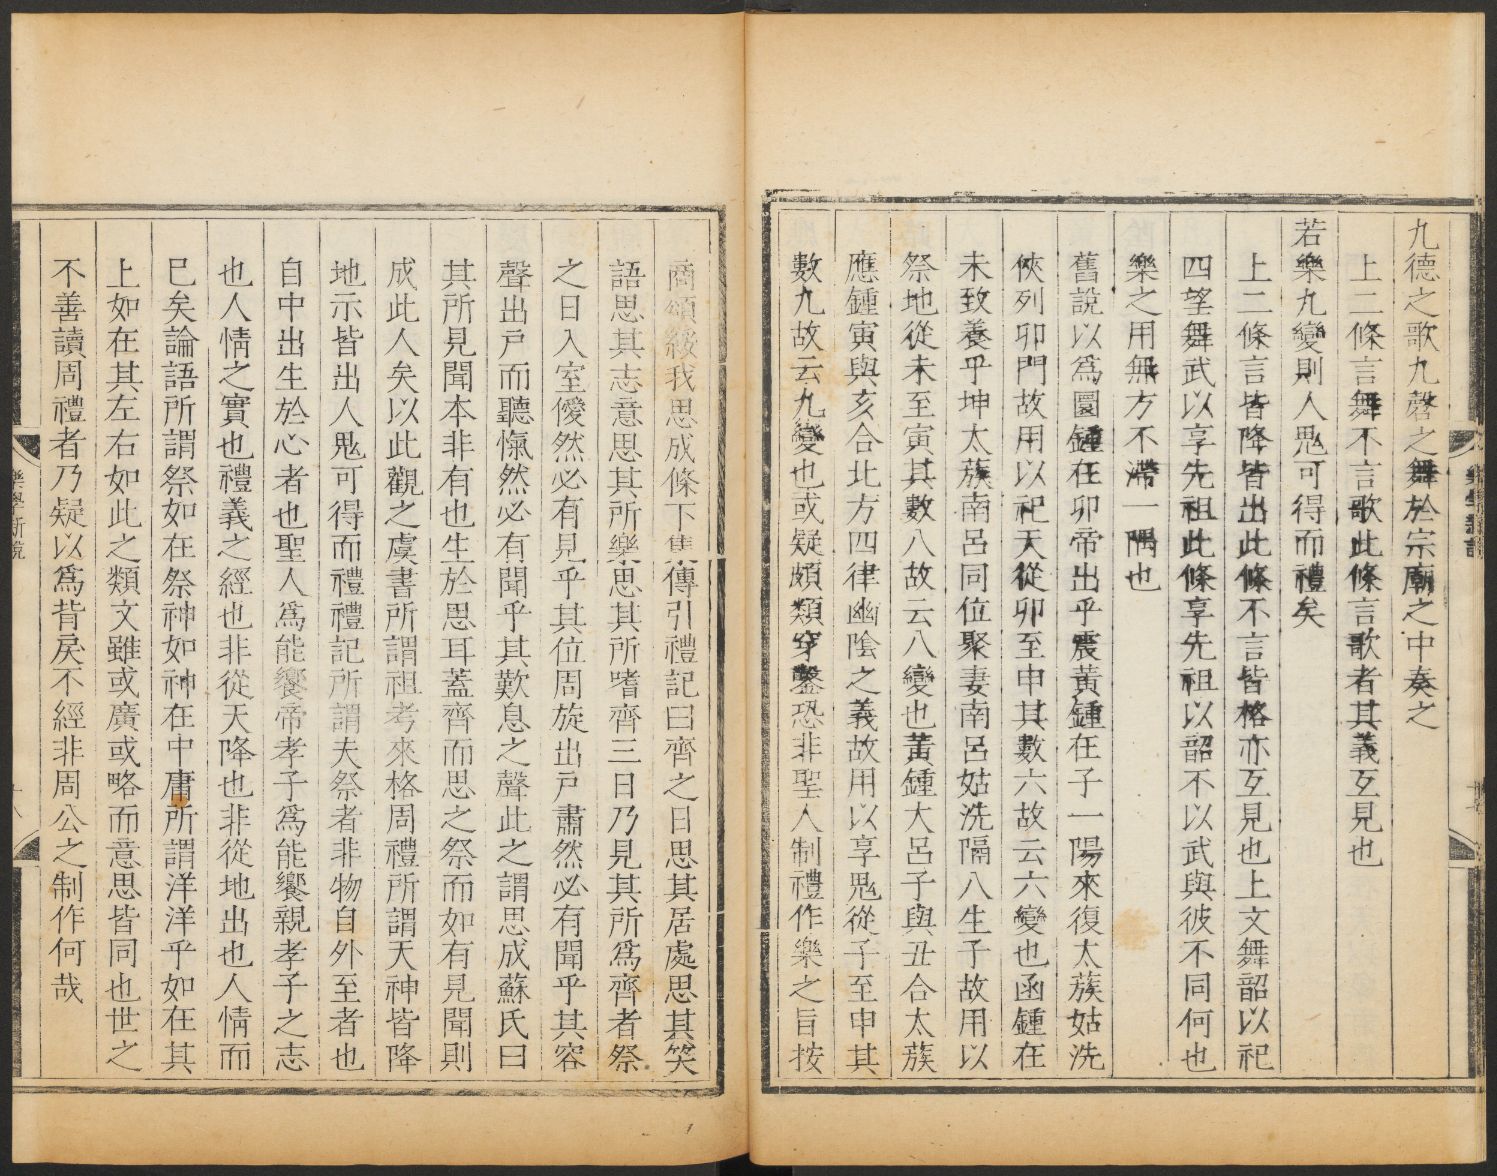 九德之歌九磬之舞於宗廟之中奏之
上二條言舞不言歌此條言歌者其義互見也
若樂九變則人鬼可得而禮矣
上二條言皆降皆出此條不言皆格亦互見也上文舞韶以祀
四望舞武以享先祖此條享先祖以韶不以武與彼不同何也
樂之用無方不滯一隅也
舊說以爲圜鍾在卯帝出乎震黃鍾在子一陽來復太蔟姑洗
俠列卯門故用以祀天從卯至申其數六故云六變也函鍾在
未致養乎坤太蔟南呂同位聚妻南呂姑洗隔八生子故用以
祭地從未至寅其數八故云八變也黃鍾大呂子與丑合太蔟
應鍾寅與亥合北方四律幽陰之義故用以享鬼從子至申其
數九故云九變也或疑頗類穿鑿恐非聖人制禮作樂之旨按
樂學新說
商頌綏我思成條下集傳引禮記曰齊之日思其居處思其笑
語思其志意思其所樂思其所嗜齊三日乃見其所爲齊者祭
之日入室僾然必有見乎其位周旋出戶肅然必有聞乎其容
聲出戶而聽愾然必有聞乎其歎息之聲此之謂思成蘇氏曰
其所見聞本非有也生於思耳蓋齊而思之祭而如有見聞則
成此人矣以此觀之虞書所謂祖考來格周禮所謂天神皆降
地示皆出人鬼可得而禮禮記所謂夫祭者非物自外至者也
自中出生於心者也聖人爲能饗帝孝子爲能饗親孝子之志
也人情之實也禮義之經也非從天降也非從地出也人情而
已矣論語所謂祭如在祭神如神在中庸所謂洋洋乎如在其
上如在其左右如此之類文雖或廣或略而意思皆同也世之
不善讀周禮者乃疑以爲背戾不經非周公之制作何哉
樂學新說
十八